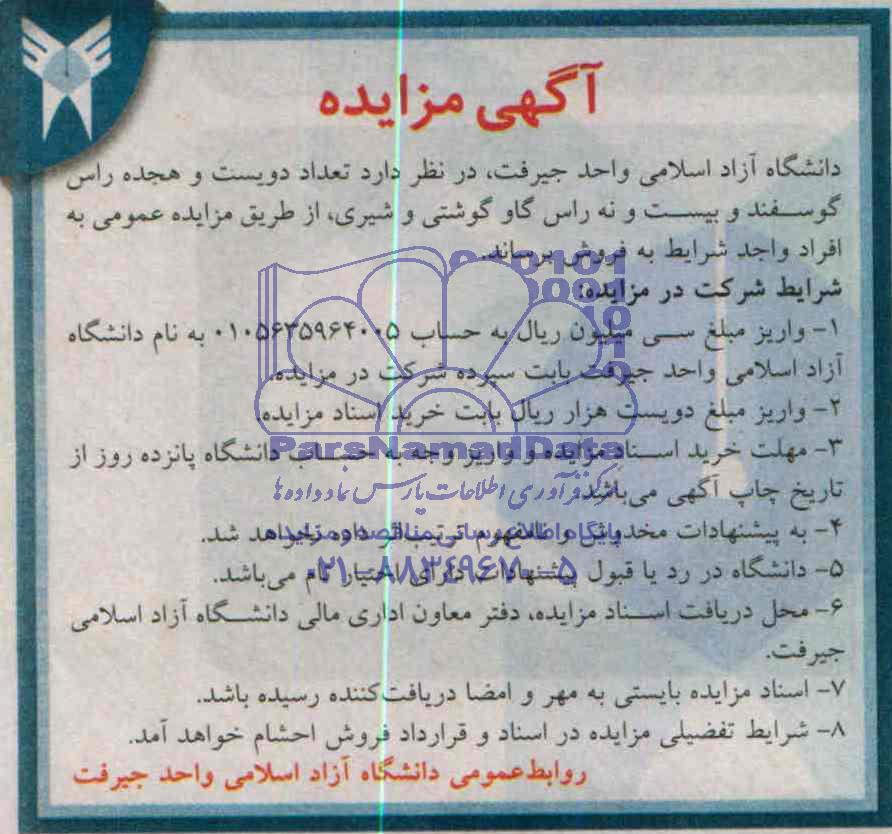 آگهی مزایده
دانشگاه آزاد اسلامی واحد جیرفت، در نظر دارد تعداد دویست و هجده راس
گوسفند و بیست و نه راس گاو گوشتی و شیری، از طریق مزایده عمومی به
افراد واجد شرایط به فروش برساند.
شرایط شرکت در مزایده:
۱- واریز مبلغ سی میلیون ریال به حساب ۰۱۰۵۶۳۵۹۶۴۰۰۵ به نام دانشگاه
آزاد اسلامی واحد جیرفت بابت سپرده شرکت در مزایده.
۲- واریز مبلغ دویست هزار ریال بابت خرید اسناد مزایده.
ParsNamadData
۳- مهلت خرید اسناد مزایده و واریز وجه به حساب دانشگاه پانزده روز از
تاریخ چاپ آگهی می‌باشد.
مرکز فرآوری اطلاعات پارس نماد داده ها
۴- به پیشنهادات مخدوش و نامفهوم ترتیب‌اثر داده نخواهد شد.
پایگاه اطلاع رسانی مناقصه و مزایده
۵- دانشگاه در رد یا قبول پیشنهادات دارای اختیار تام می‌باشد.
۰۲۱-۸۸۳۴۹۶۷۰-۵
۶- محل دریافت اسناد مزایده، دفتر معاون اداری مالی دانشگاه آزاد اسلامی
جیرفت.
۷- اسناد مزایده بایستی به مهر و امضا دریافت‌کننده رسیده باشد.
۸- شرایط تفضیلی مزایده در اسناد و قرارداد فروش احشام خواهد آمد.
روابط‌عمومی دانشگاه آزاد اسلامی واحد جیرفت